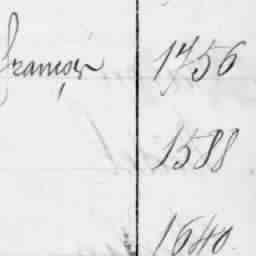 françois 1756
1588
1640